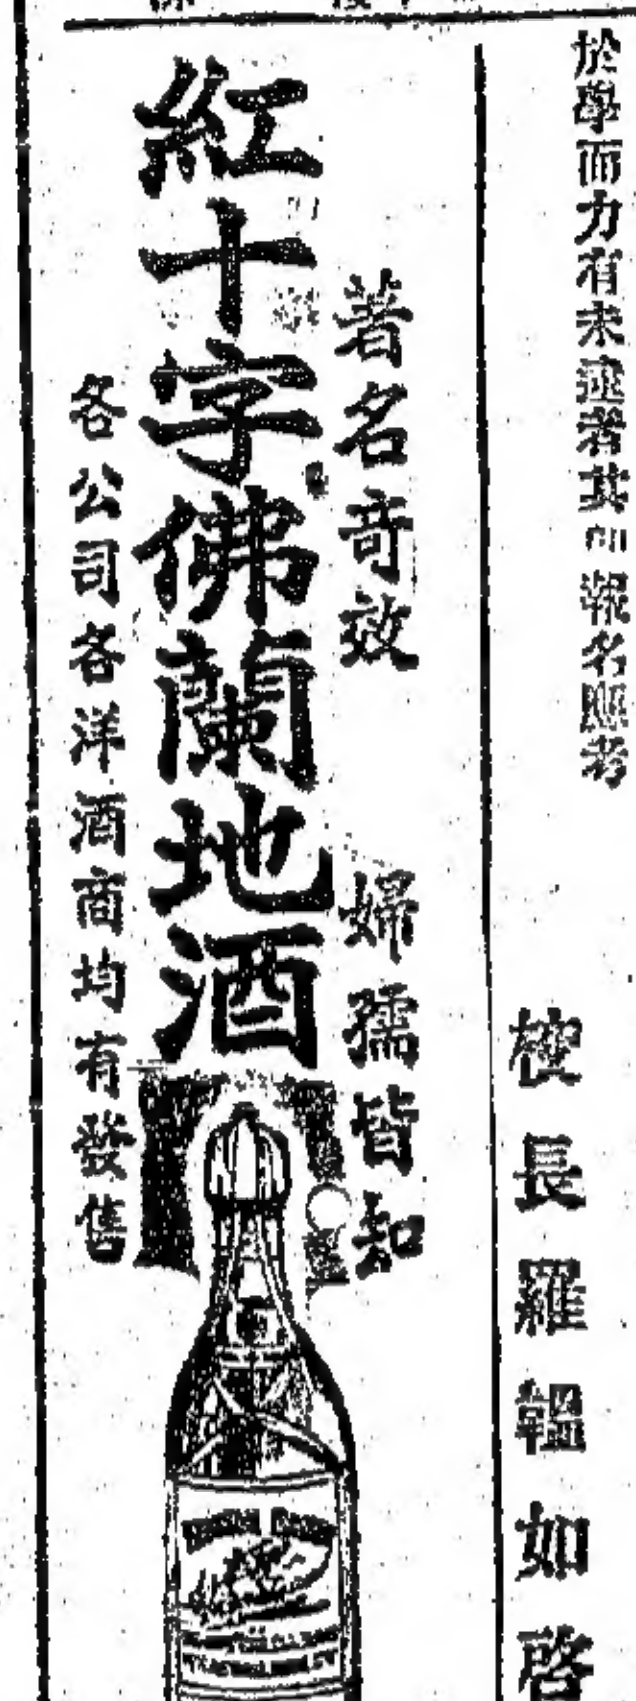 於學而力有未逮者其叩報名應考
校長羅韞如啓
著名奇效 婦孺皆知
紅十字佛蘭地酒
各公司各洋酒商均有發售